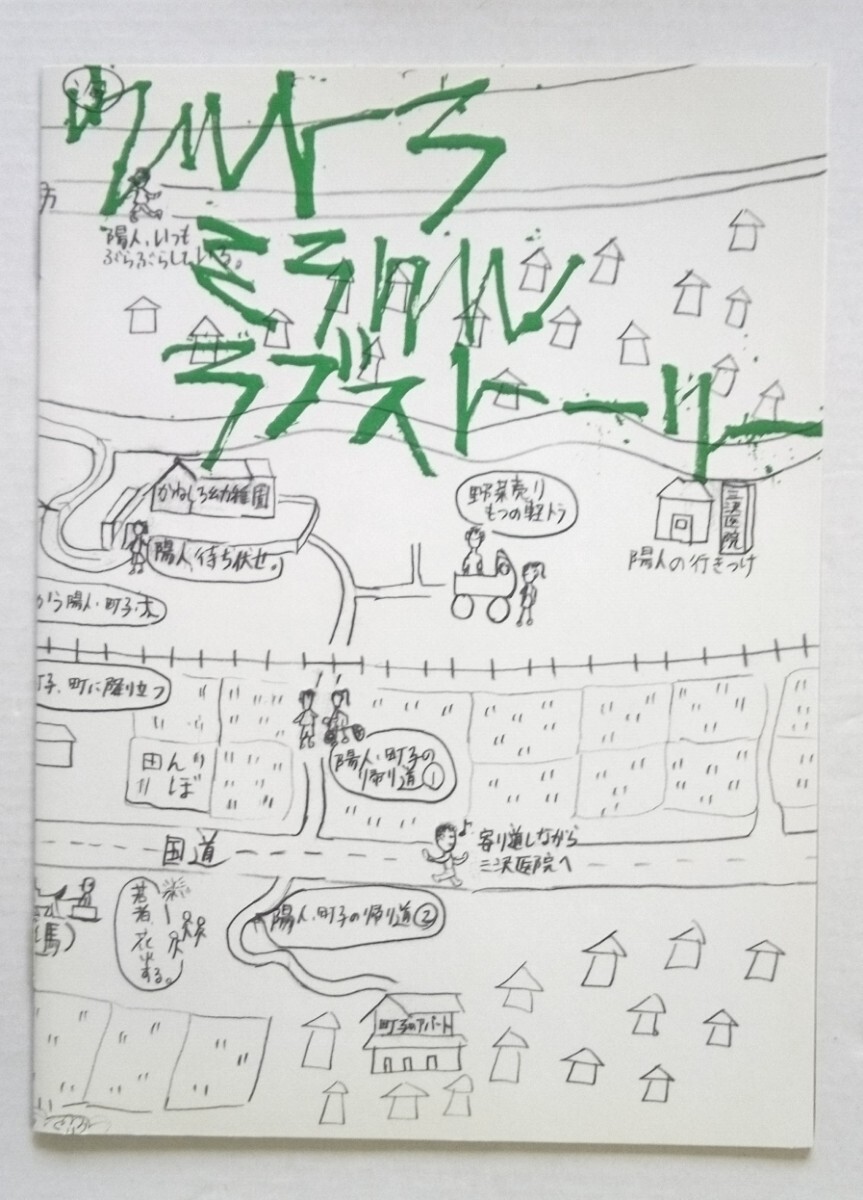 ウルトラ
陽人、いつも
ぶらぶらしている。
ミラクル
ラブストーリー
かねしろ幼稚園
野菜売り
もつの軽トラ
三沢医院
陽人待ち伏せ。
陽人の行きつけ
から陽人・町子
子、町に降り立つ
陽人・町子の
帰り道①
田んぼ
国道
寄り道しながら
三沢医院へ
若者、花火する。
陽人・町子の帰り道②
馬)
町子のアパート